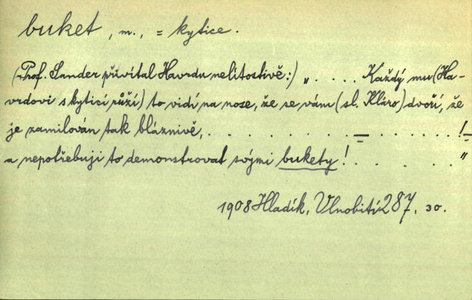 buket, m., = kytice.
(Prof. Sander přivítal Havrdu nelítostivě:) „ . . . . Každý mu (Ha-
vrdovi s kyticí růží) to vidí na nose, že se vám (sl. Kláro) dvoří, že
je zamilován tak bláznivě, . . . . . . . . . – . . . . . . !–
a nepotřebuji to demonstrovat svými bukety! . . . . . . . . “
1908 Hladík, Vlnobití 287, 30.